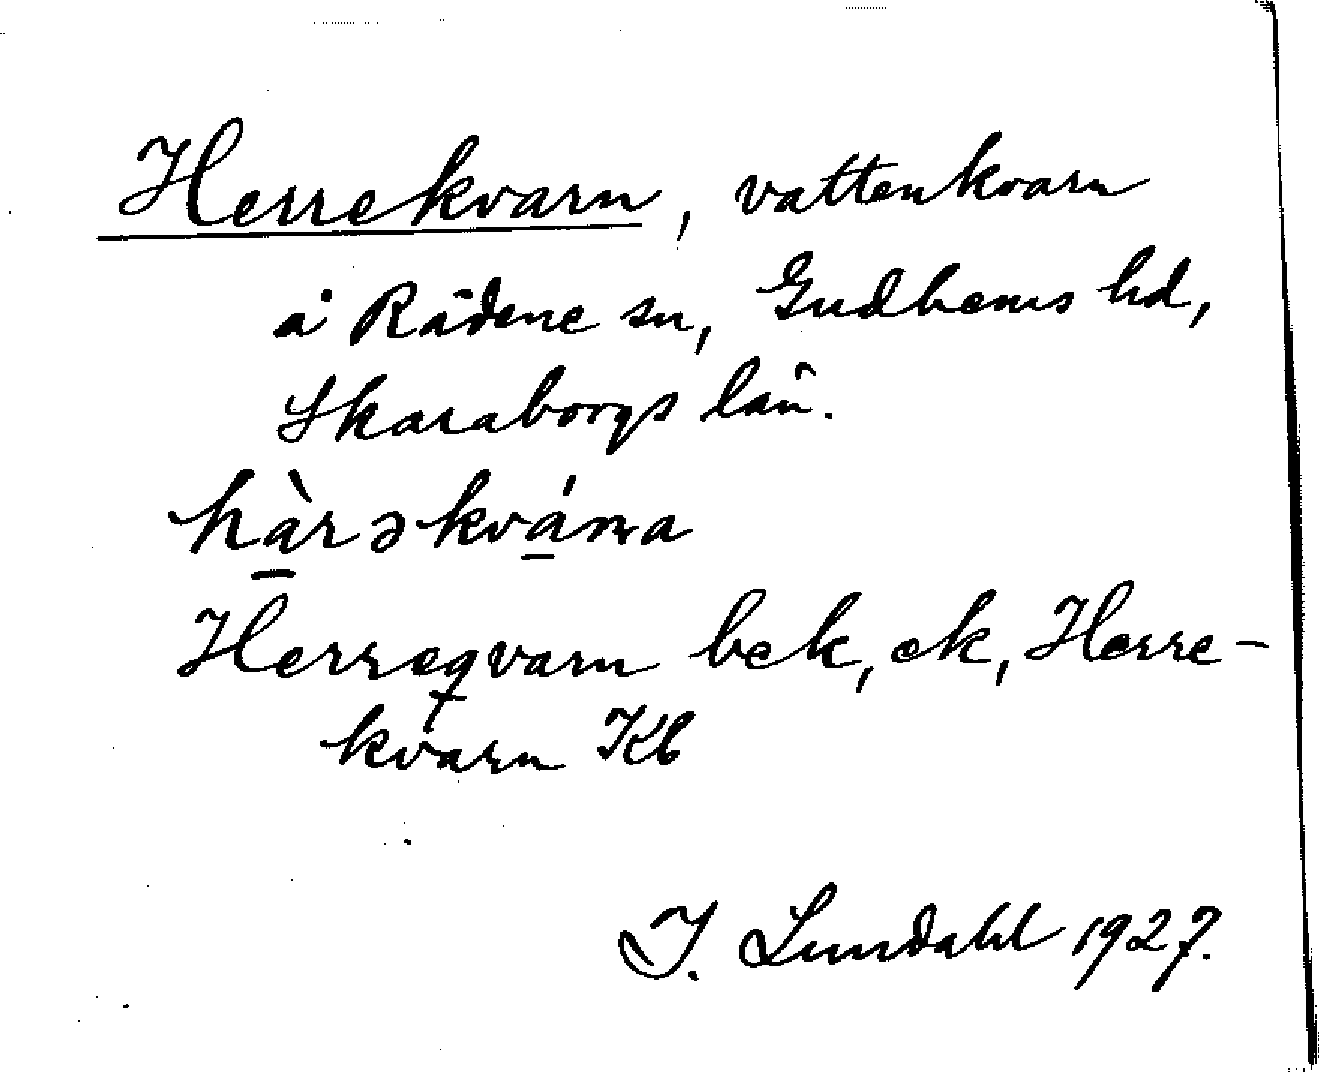 Herrekvarn, vattenkvarn
å Rådene sn, Gudhems hd,
Skaraborgs län.
hàrəkvána
Herreqvarn bek, ek, Herre-
kvarn Kb
I. Lundahl 1927.